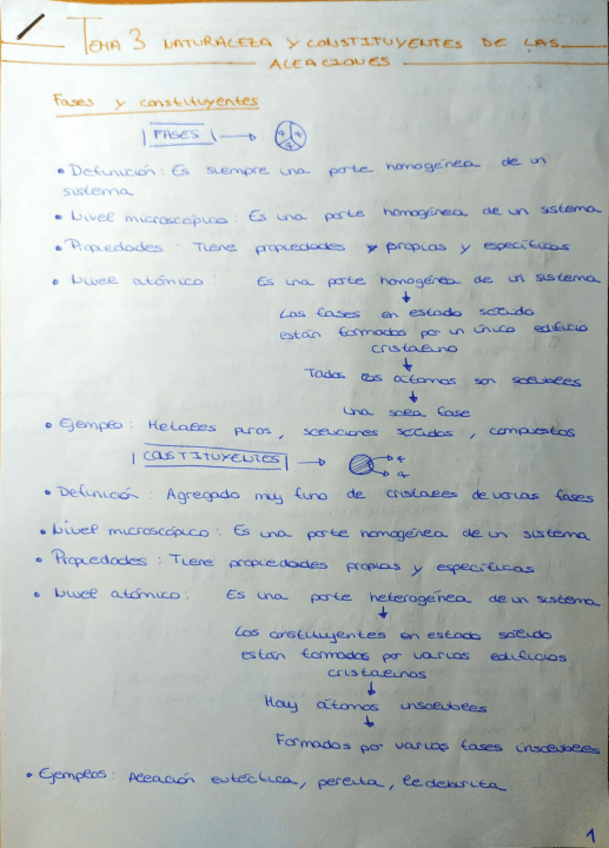 TEMA 3 NATURALEZA Y CONSTITUYENTES DE LAS
ALEACIONES
Fases y constituyentes
FASES →
• Definición: Es siempre una parte homogénea de un
sistema
• Nivel microscópico: Es una parte homogénea de un sistema
• Propiedades: Tiene propiedades y propias y específicas
• Nivel atómico: Es una parte homogénea de un sistema
↓
Las fases en estado solido
están formados por un único edificio
cristalino
↓
Todos los átomos son solubles
↓
Una sola fase
• Ejemplo: Metales puros, soluciones solidas, compuestos
CONSTITUYENTES →
• Definición: Agregado muy fino de cristales de varias fases
• Nivel microscópico: Es una parte homogénea de un sistema
• Propiedades: Tiene propiedades propias y específicas
• Nivel atómico: Es una parte heterogénea de un sistema
↓
Los constituyentes en estado solido
están formados por varios edificios
cristalinos
↓
Hay átomos insolubles
↓
Formados por varias fases insolubles
• Ejemplos: Aleación eutéctica, perlita, ledeburita
1